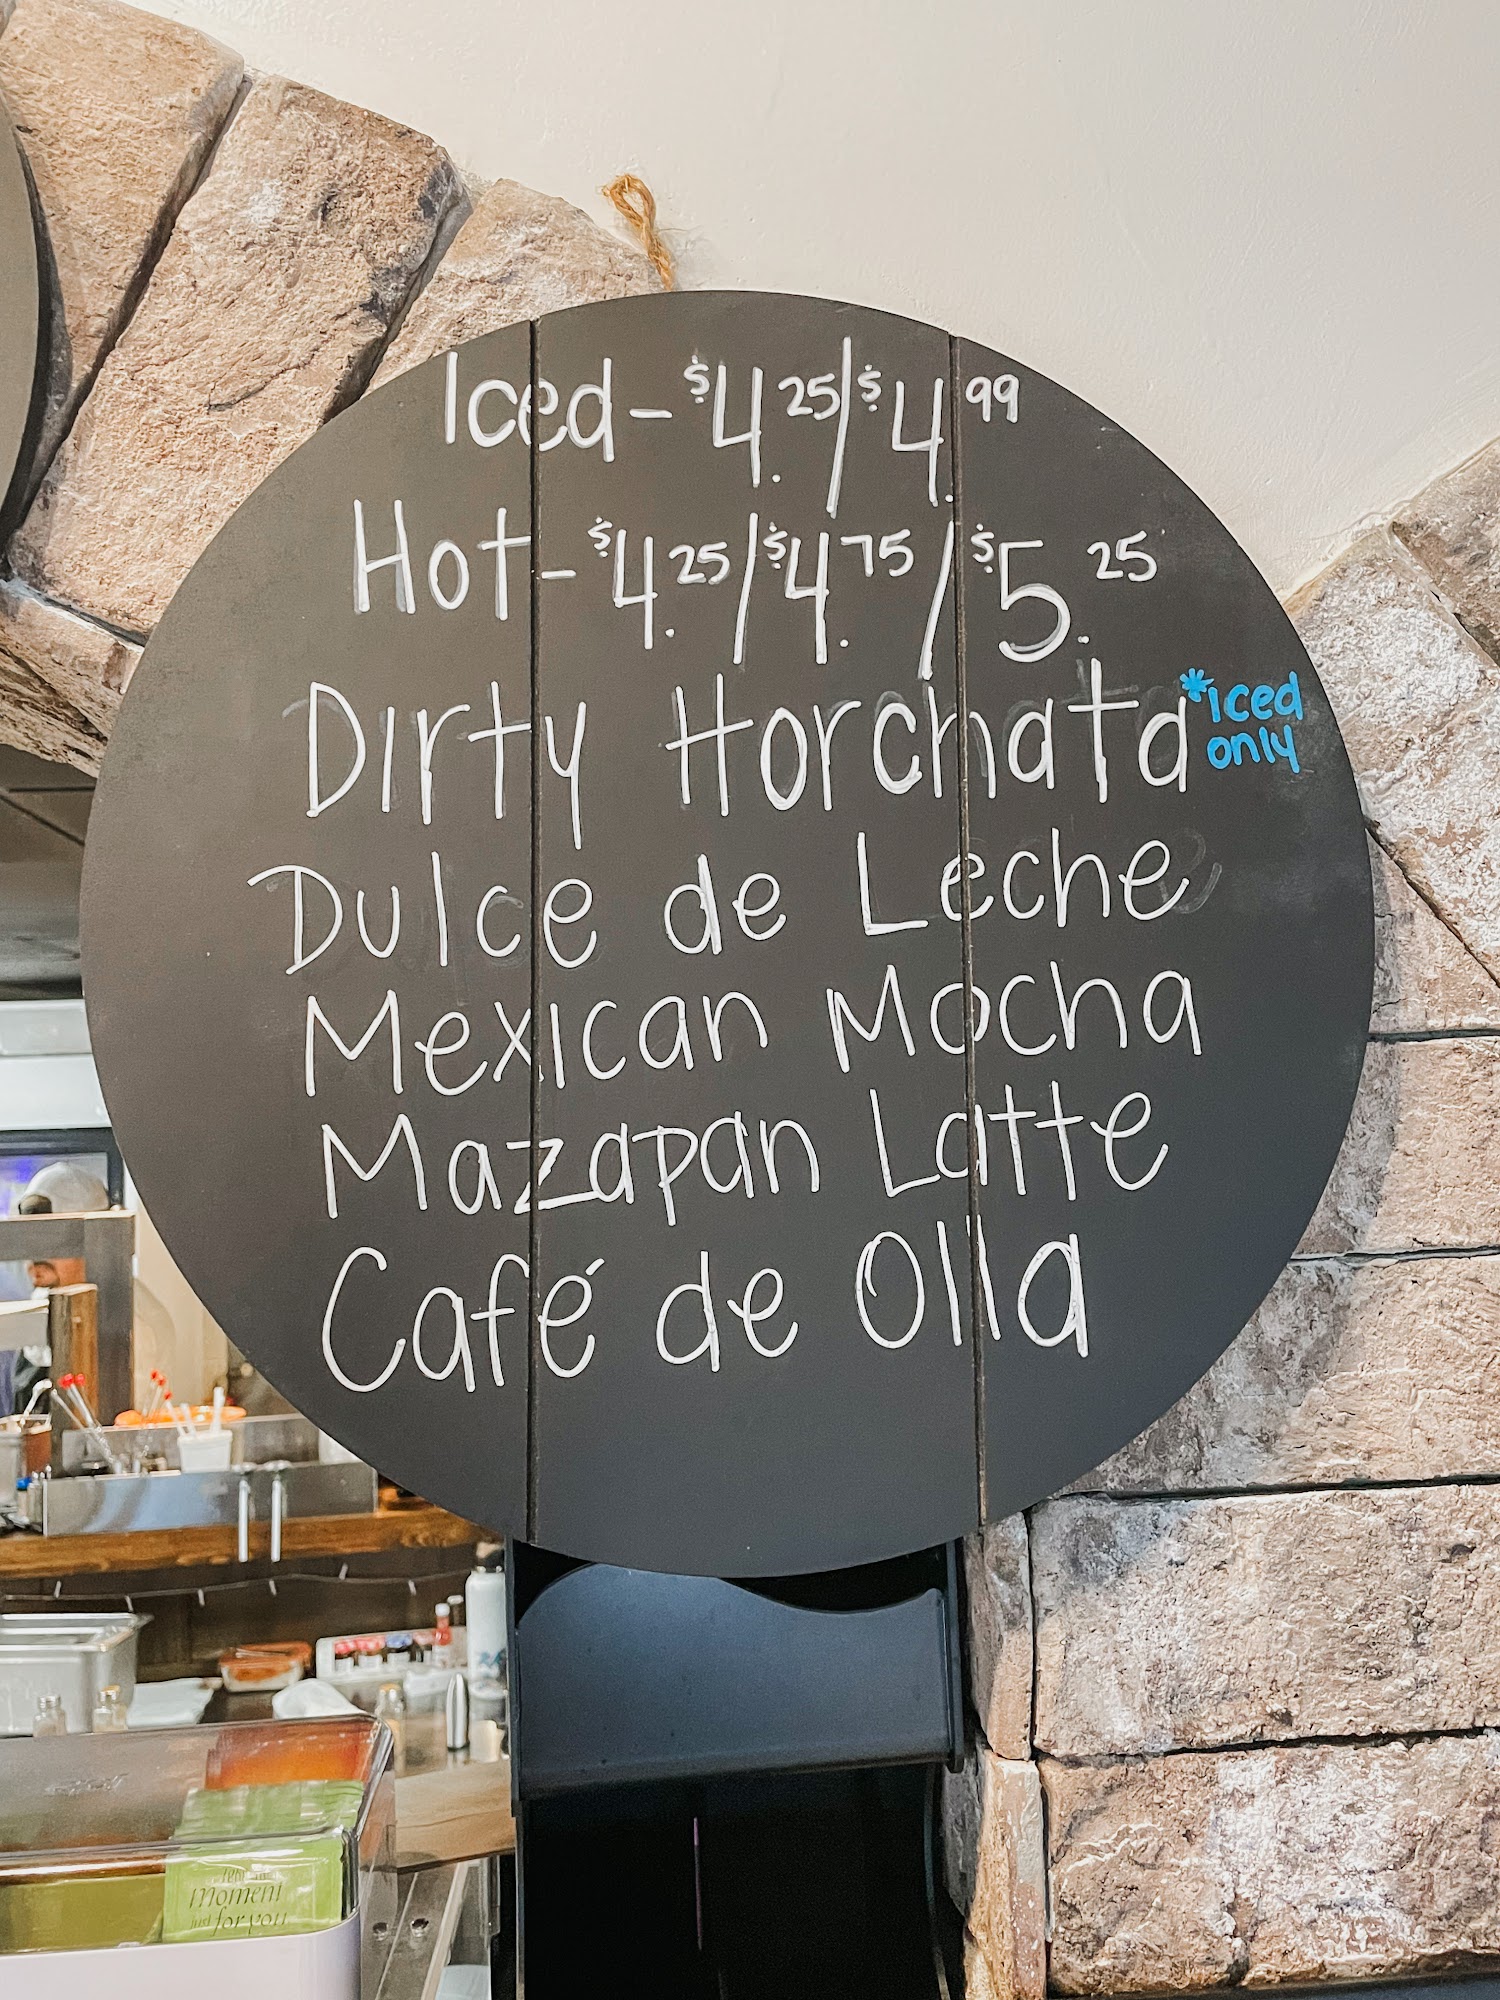 Iced - $4.25/$4.99
Hot - $4.25/$4.75/$5.25
Dirty Horchata *iced
only
Dulce de Leche
Mexican Mocha
Mazapan Latte
Café de Olla
moment
just for you